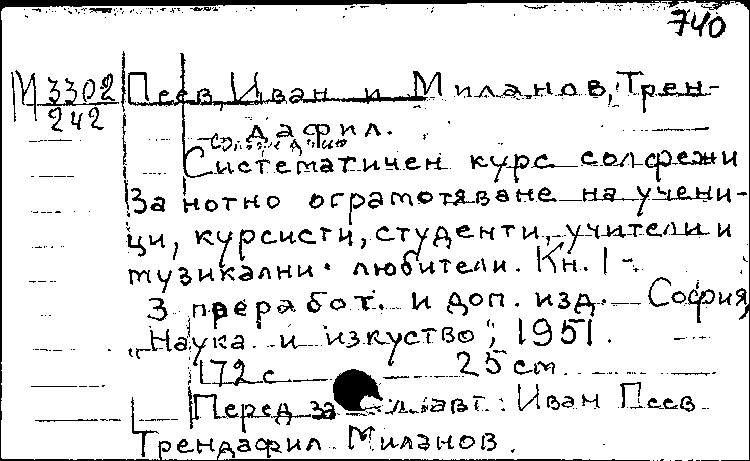 740
М 3302 Пеев, Иван и Миланов, Трен-
242
дафил.
Систематичен курс солфежи
за нотно ограмотяване на учени-
ци, курсисти, студенти, учители и
музикални любители. Кн. 1 -
3 преработ. и доп. изд. София,
„Наука и изкуство", 1951.
172 с 25 см
Перед за Иван Пеев
Трендафил Миланов.